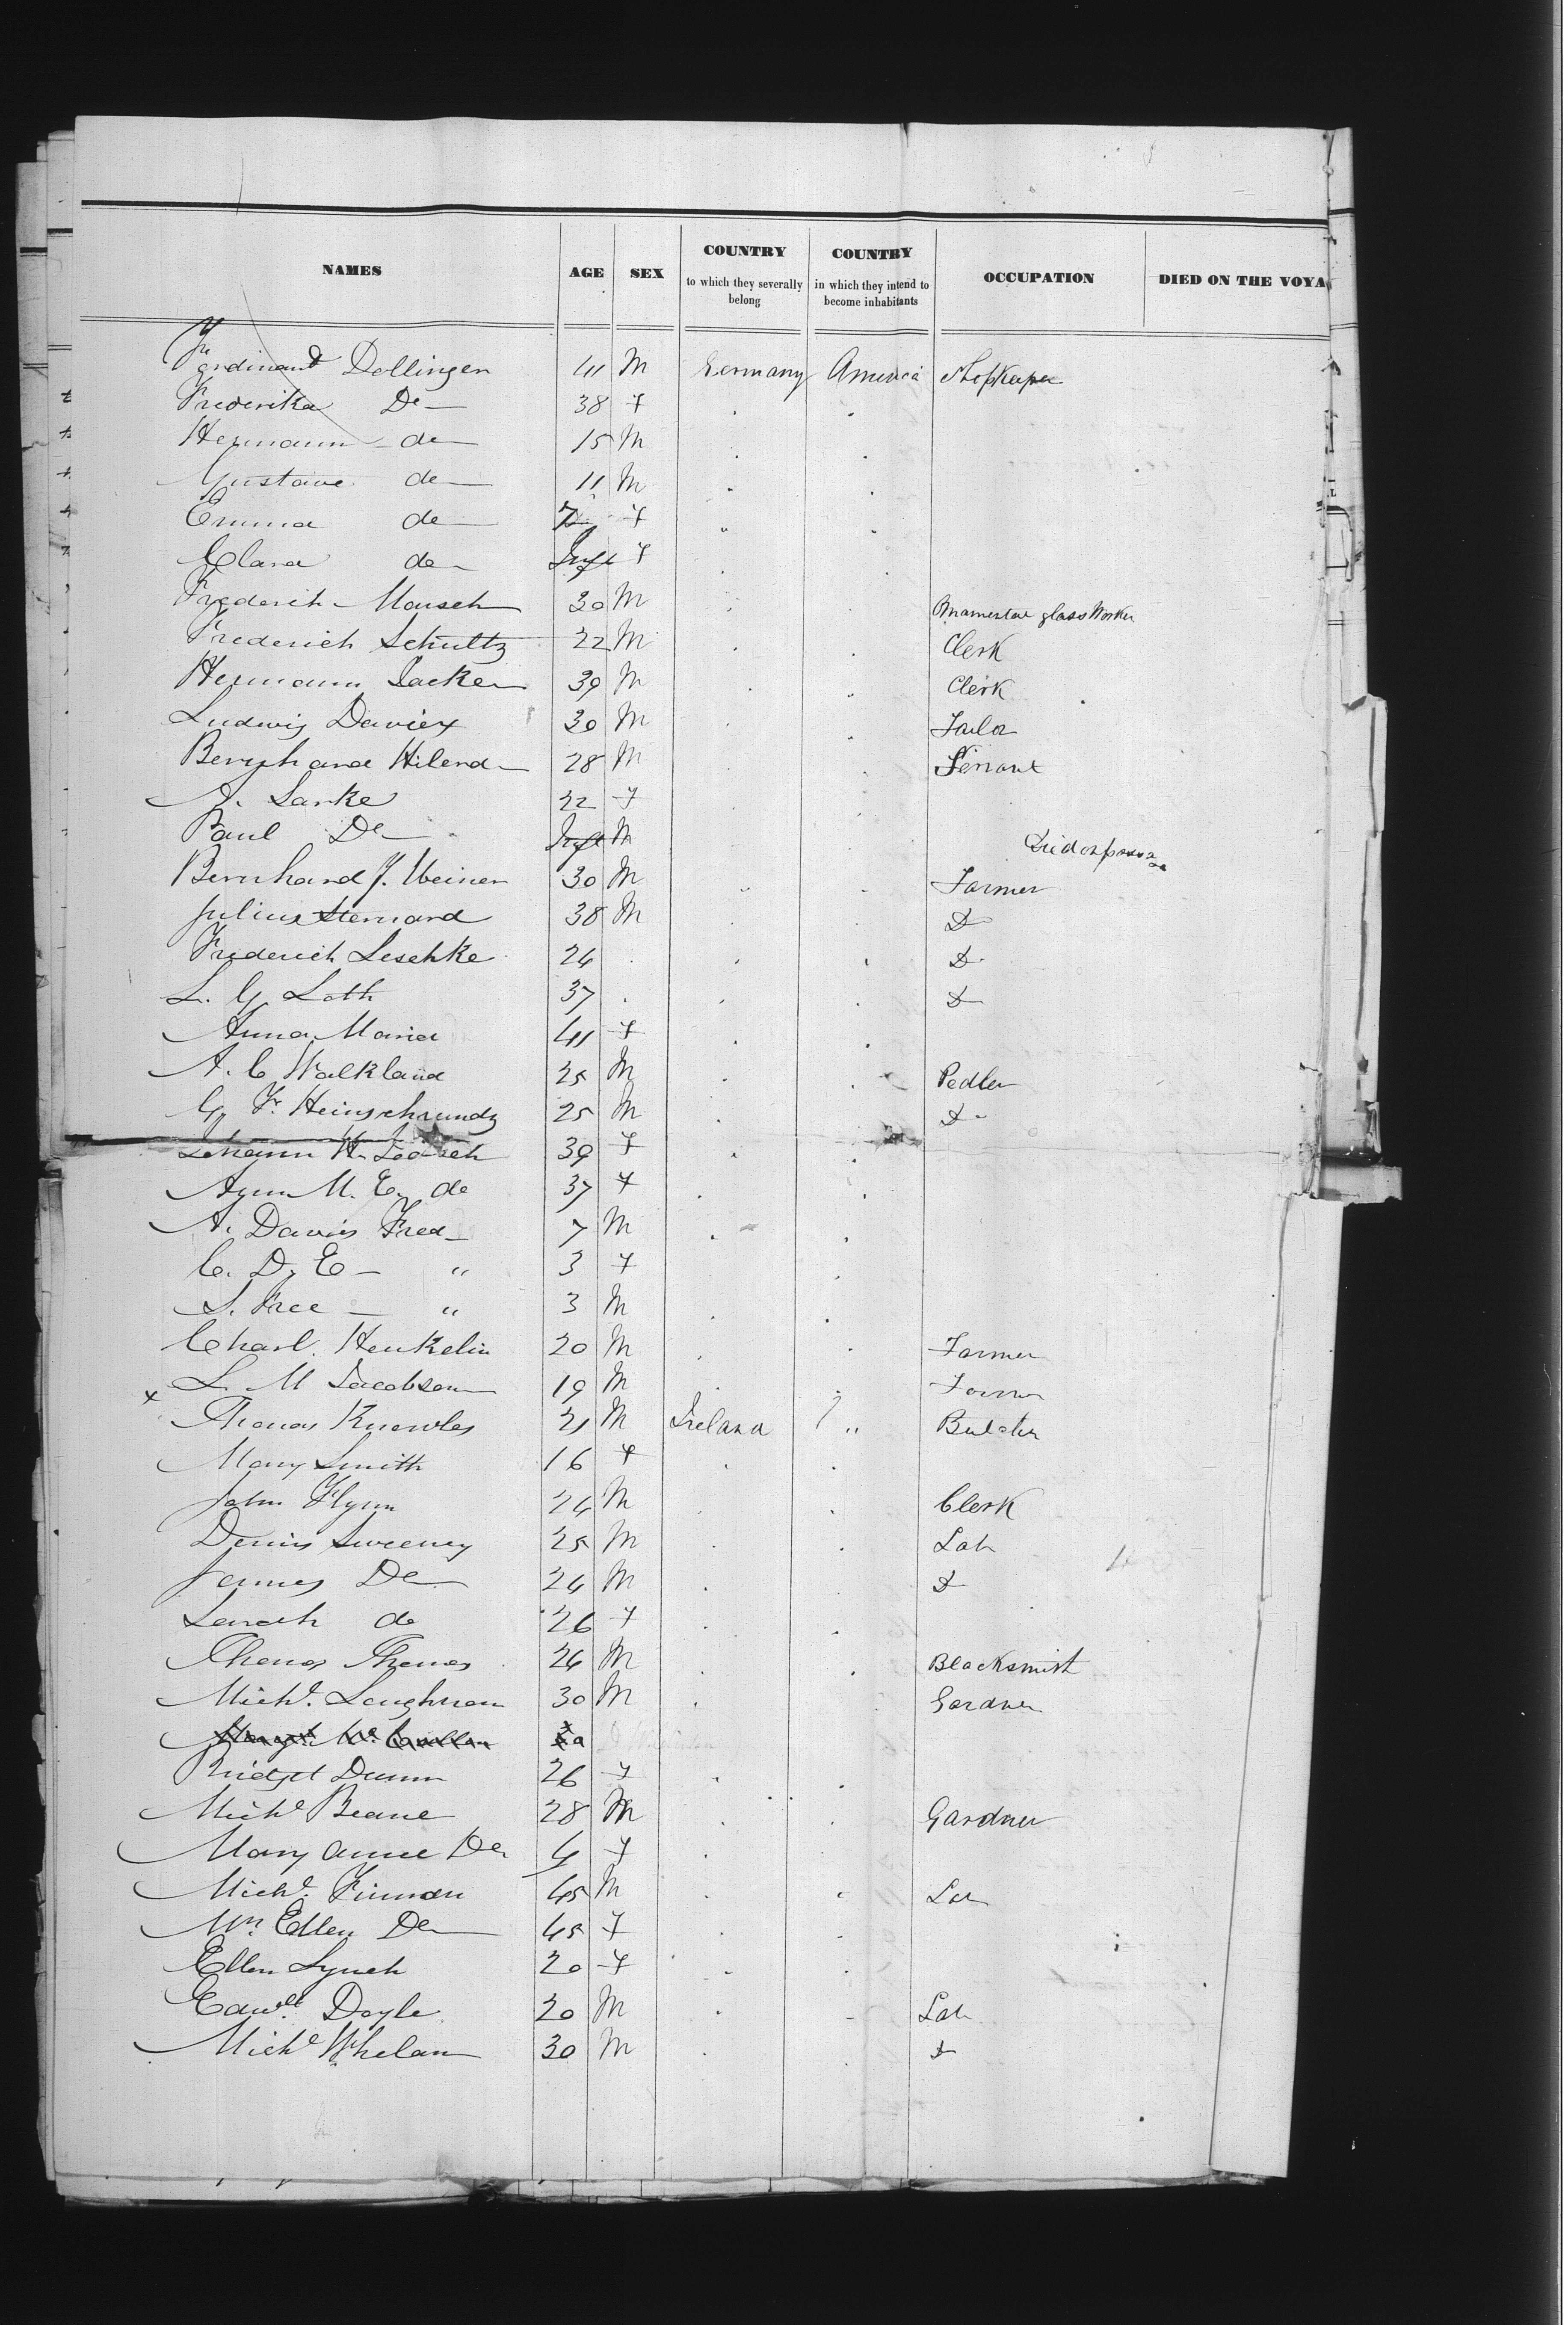 NAMES AGE SEX COUNTRY to which they severally belong COUNTRY in which they intend to become inhabitants OCCUPATION DIED ON THE VOYA
Ferdinand Dollinger 41 M Germany America Shopkeeper
Frederika Do 38 F
Hermann do 15 M
Gustave do 11 M
Emma do 7 F
Clara do Inft F
Frederich Mousch 30 M Ornamental glass Worker
Frederich Schultz 22 M Clerk
Hermann Sacker 39 M Clerk
Ludwig 30 M Tailor
28 M Servant
A. Sanke 22 F
Paul Do Inft M Died on passage
Bernhard J. Weiner 30 M Farmer
Julius 38 M Do
Frederich Leschke 24 Do
L. G. Loth 37 Do
Anna Maria 41 F
A. C 25 M Pedler
G. Fr. 25 M Do
Johann H. 39 F
M. E. do 37 F
A. Fred 7 M
C. D. E " 3 F
S. Free " 3 M
Charl. Henkelin 20 M Farmer
x L. M Jacobson 19 M Farmer
Thomas Knowles 21 M Ireland " Butcher
Mary Smith 16 F
John Flynn 24 M Clerk
Denis Sweeney 25 M Lab
James Do 24 M Do
do 26 F
Thomas Thomas 24 M Blacksmith
Michl. Loughman 30 M Gardner
Bridget Dunn 26 F
Michl Beane 28 M Gardner
Mary Anne Do 4 F
Michl. Finnan 45 M Lab
Mrs Ellen Do 45 F
Ellen Lynch 20 F
Edwd. Doyle 20 M Lab
Michl Whelan 30 M Do